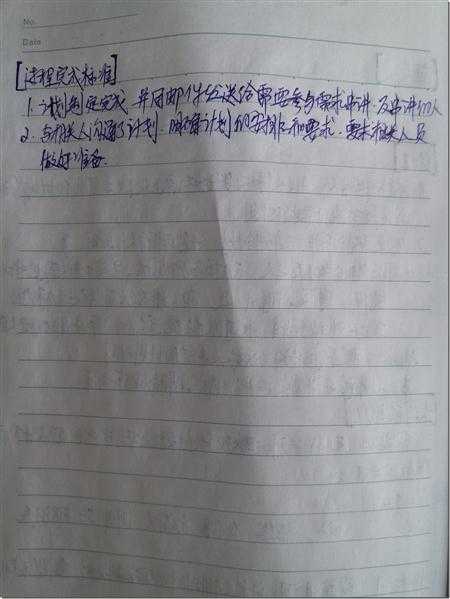 No.
Date
[过程完成标准]
1. 计划制定完成 并用邮件发送给需要参与需求串讲、反串讲的人
2. 与相关人沟通了计划.明确计划的安排和要求.需求相关人员
做好准备